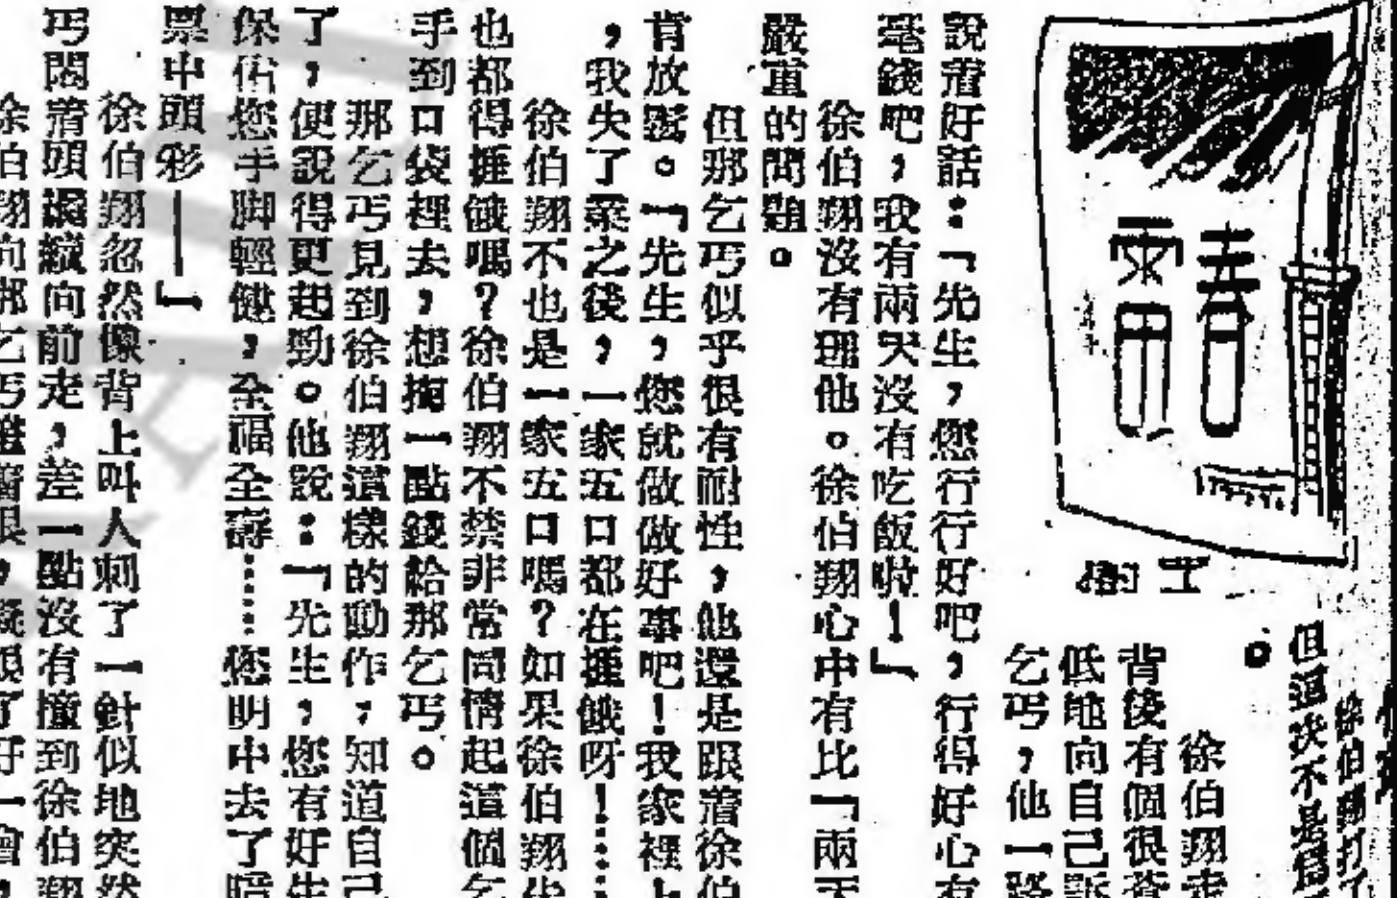 春雷
但這次不是
徐伯翔走
背後有個很蒼
低地向自己訴
乞丐,他一路
說着好話:「先生,您行行好吧,行得好心有
毫錢吧,我有兩天沒有吃飯啦!」
徐伯翔沒有理他。徐伯翔心中有比「兩天
嚴重的問題。
但那乞丐似乎很有耐性,他還是跟着徐伯
肯放鬆。「先生,您就做做好事吧!我家裡上
,我失了業之後,一家五口都在捱餓呀!……
徐伯翔不也是一家五口嗎?如果徐伯翔失
也都得捱餓嗎?徐伯翔不禁非常同情起這個乞
手到口袋裡去,想摸一點錢給那乞丐。
那乞丐見到徐伯翔這樣的動作,知道自己
了,便說得更起勁。他說:「先生,您有好生
保佑您手脚輕健,全福全壽……您明中去了暗
票中頭彩——」
徐伯翔忽然像背上叫人刺了一針似地突然
丐悶着頭繼續向前走,差一點沒有撞到徐伯翔
徐伯翔向那乞丐瞪着眼,凝視了好一會,